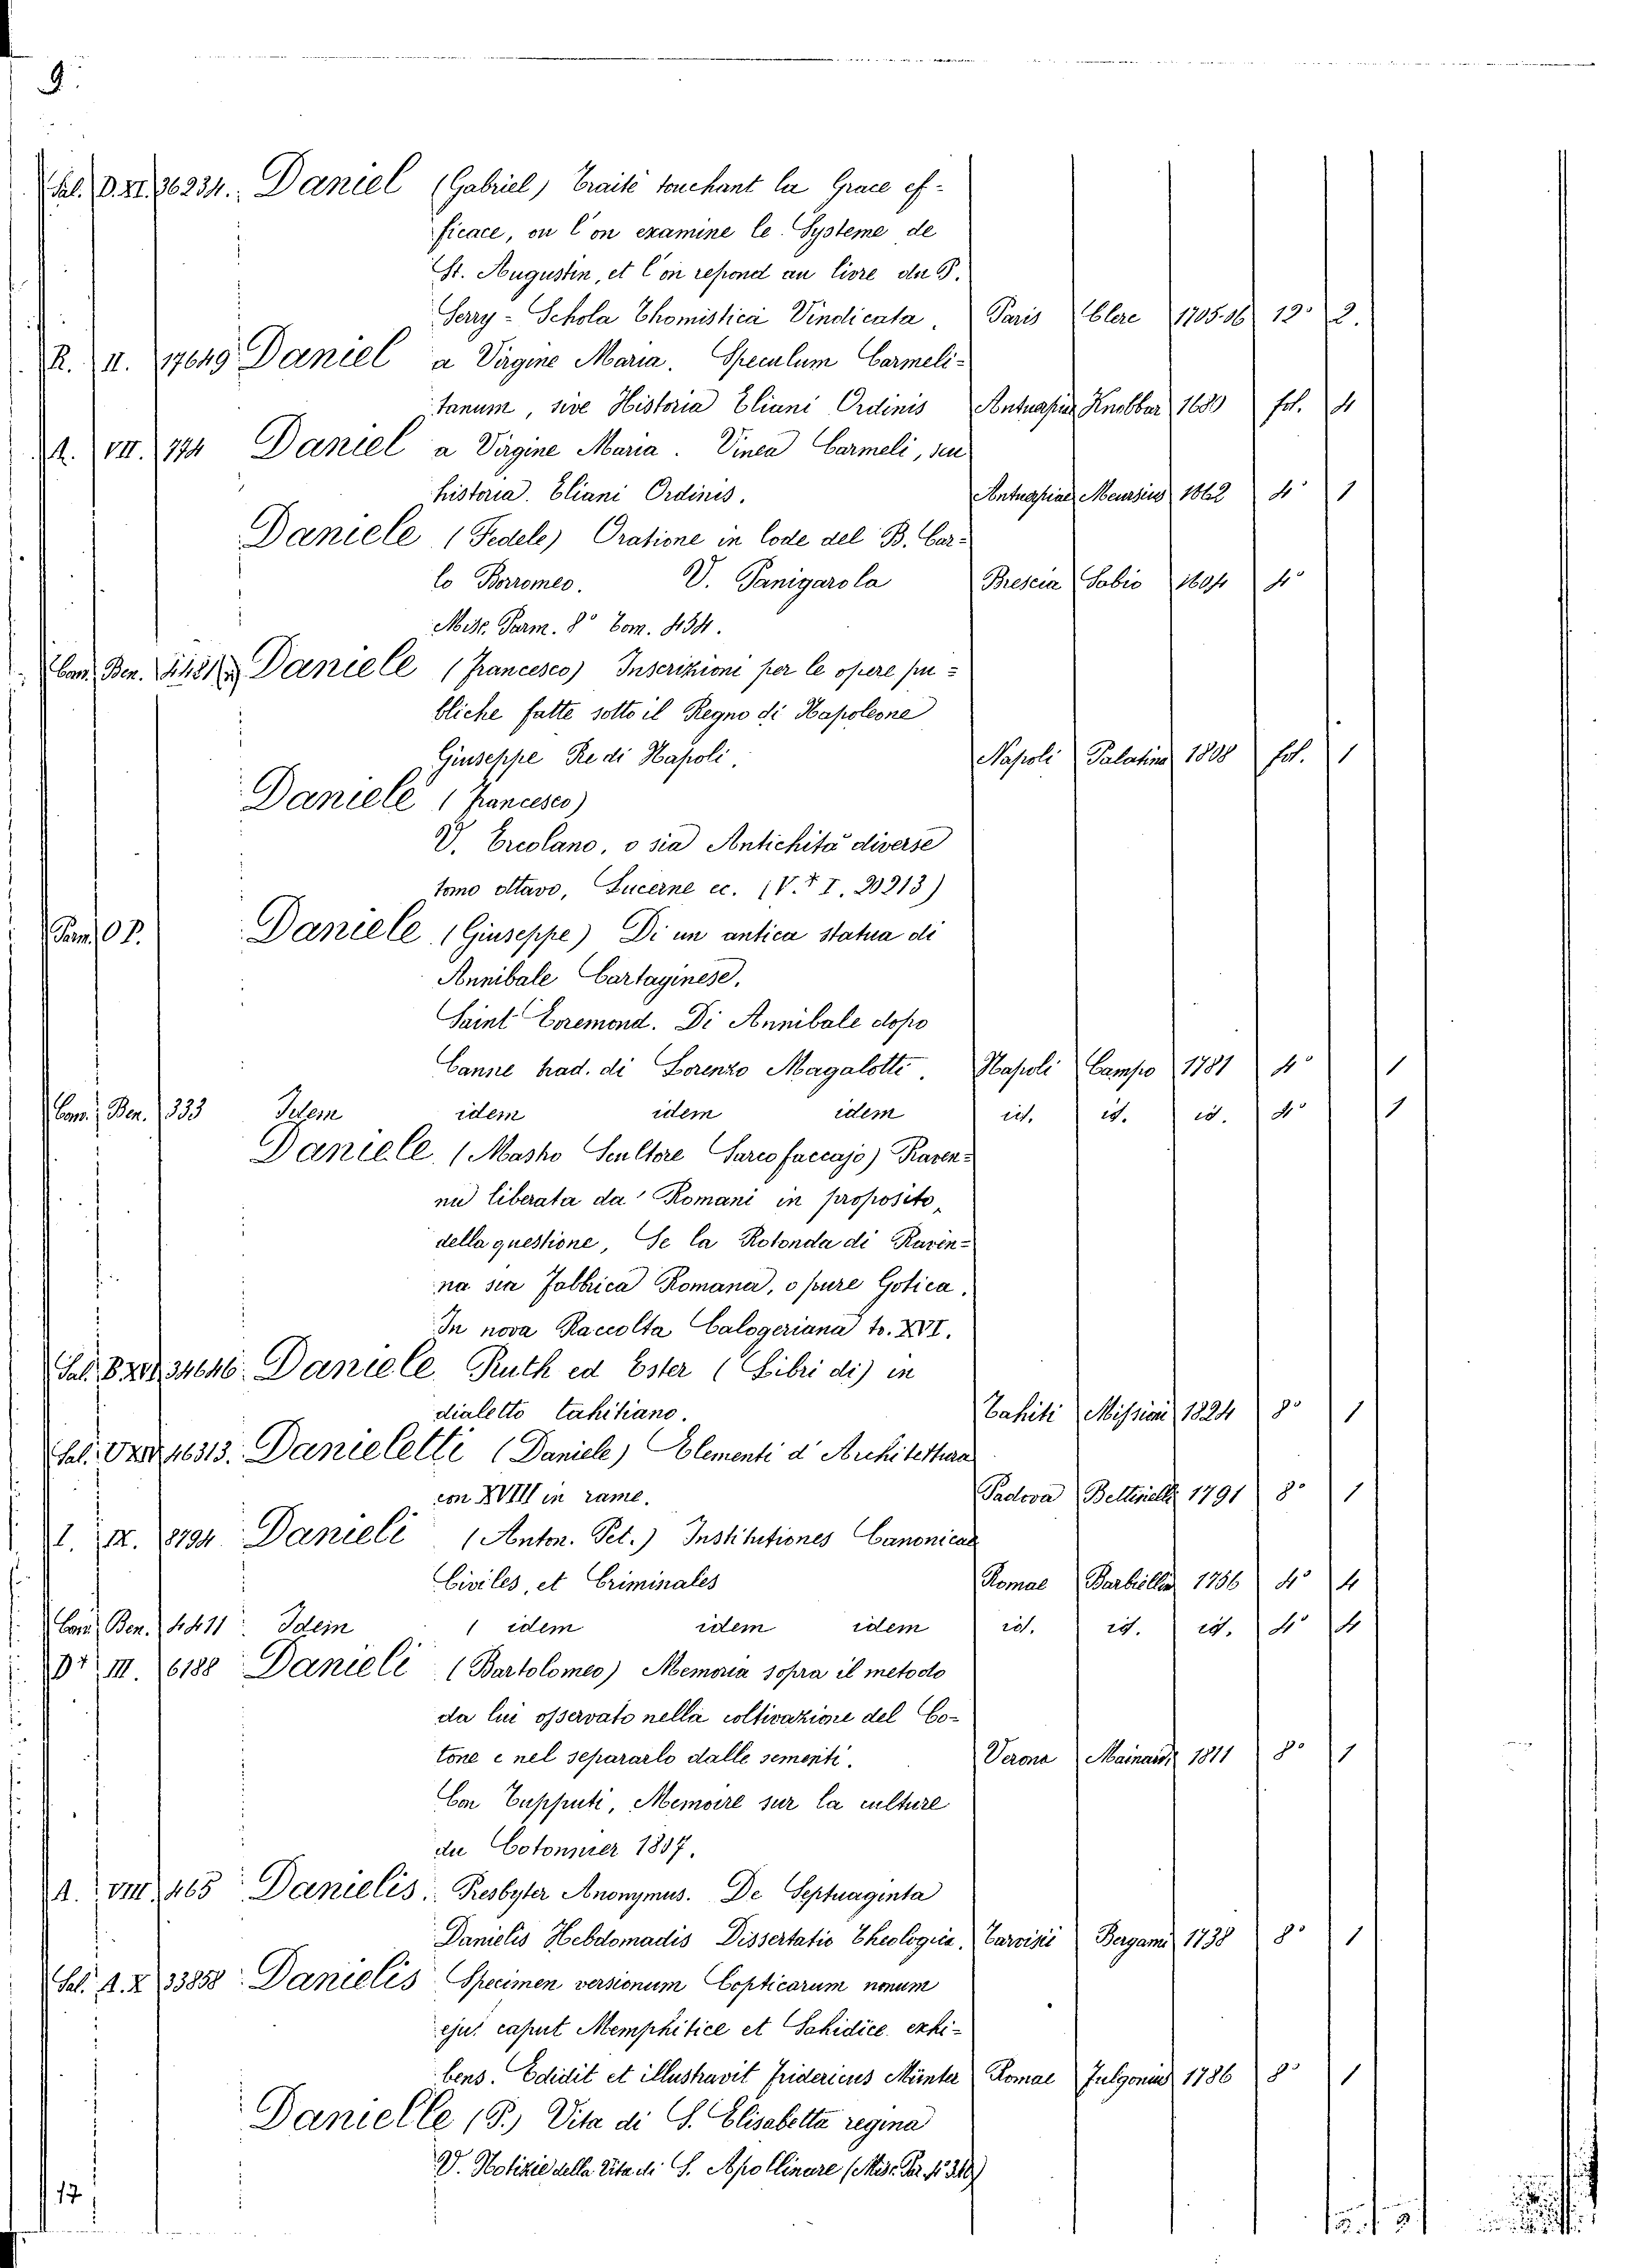 9.
Sal. D. XI. 36234. Daniel (Gabriel) Traité touchant la Grace ef-
ficace, ou l'on examine le Systeme de
St. Augustin, et l'on repond au livre du P.
Serry - Schola Thomistica Vindicata. Paris Clere 1705.06 12° 2.
R. II. 17649 Daniel a Virgine Maria. Speculum Carmeli-
tanum, sive Historia Eliani Ordinis Antuerpiae Knobbar 1680 fol. 4
A. VII. 774 Daniel a Virgine Maria. Vinea Carmeli, seu
historia Eliani Ordinis. Antuerpiae Meursius 1662 4° 1
Daniele (Fedele) Oratione in lode del B. Car-
lo Borromeo. V. Panigarola Brescia Sabio 1604 4°
Misc. Parm. 8° Tom. 434.
Cam. Ben. Daniele (Francesco) Inscrizioni per le opere pu-
bliche fatte sotto il Regno di Napoleone
Giuseppe Re di Napoli. Napoli Palatina 1808 fol. 1
Daniele (Francesco)
V. Ercolano, o sia Antichità diverse
tomo ottavo, Lucerne ec. (V. † I. 20213)
Parm. O P. Daniele (Giuseppe) Di un antica statua di
Annibale Cartaginese.
Saint Evremond. Di Annibale dopo
Canne trad. di Lorenzo Magalotti. Napoli Campo 1781 4° 1
Cam. Ben. 333 Idem idem idem idem id. id. id. 4° 1
Daniele (Mastro Scultore Sarcofaccajo) Raven-
na liberata da' Romani in proposito
della questione, Se la Rotonda di Raven-
na sia Fabbrica Romana, o pure Gotica.
In nova Raccolta Calogeriana to. XVI.
Sal. B XVI 34646. Daniele, Ruth ed Ester (Libri di) in
dialetto tahitiano. Tahiti Mission 1824 8° 1
Sal. 46313. Danieletti (Daniele) Elementi d'Architettura
con XVIII in rame. Padova Bettinelli 1791 8° 1
I. IX. 8794 Danieli (Anton. Pet.) Institutiones Canonicae
Civiles, et Criminales Romae Barbiellini 1756 4° 4
Cam. Ben. 4411 Idem (idem idem idem id. id. id. 4° 4
D† III. 6188 Danieli (Bartolomeo) Memoria sopra il metodo
da lui osservato nella coltivazione del Co-
tone e nel separarlo dalle sementi. Verona Mainardi 1811 8° 1
Con Tupputi, Memoire sur la culture
du Cotonnier 1807.
A. VIII 465 Danielis. Presbyter Anonymus. De Septuaginta
Danielis Hebdomadis Dissertatio Theologica. Tarvisii Bergami 1738 8° 1
Sal. A. X 33858 Danielis Specimen versionum Copticarum nonum
ejus caput Memphitice et Sahidice exhi-
bens. Edidit et illustravit Fridericus Münter Romae Fulgonius 1786 8° 1
Danielle (P.) Vita di S. Elisabetta regina
V. Notizie della Vita di S. Apollinare (Misc. Par. 4° 310)
17